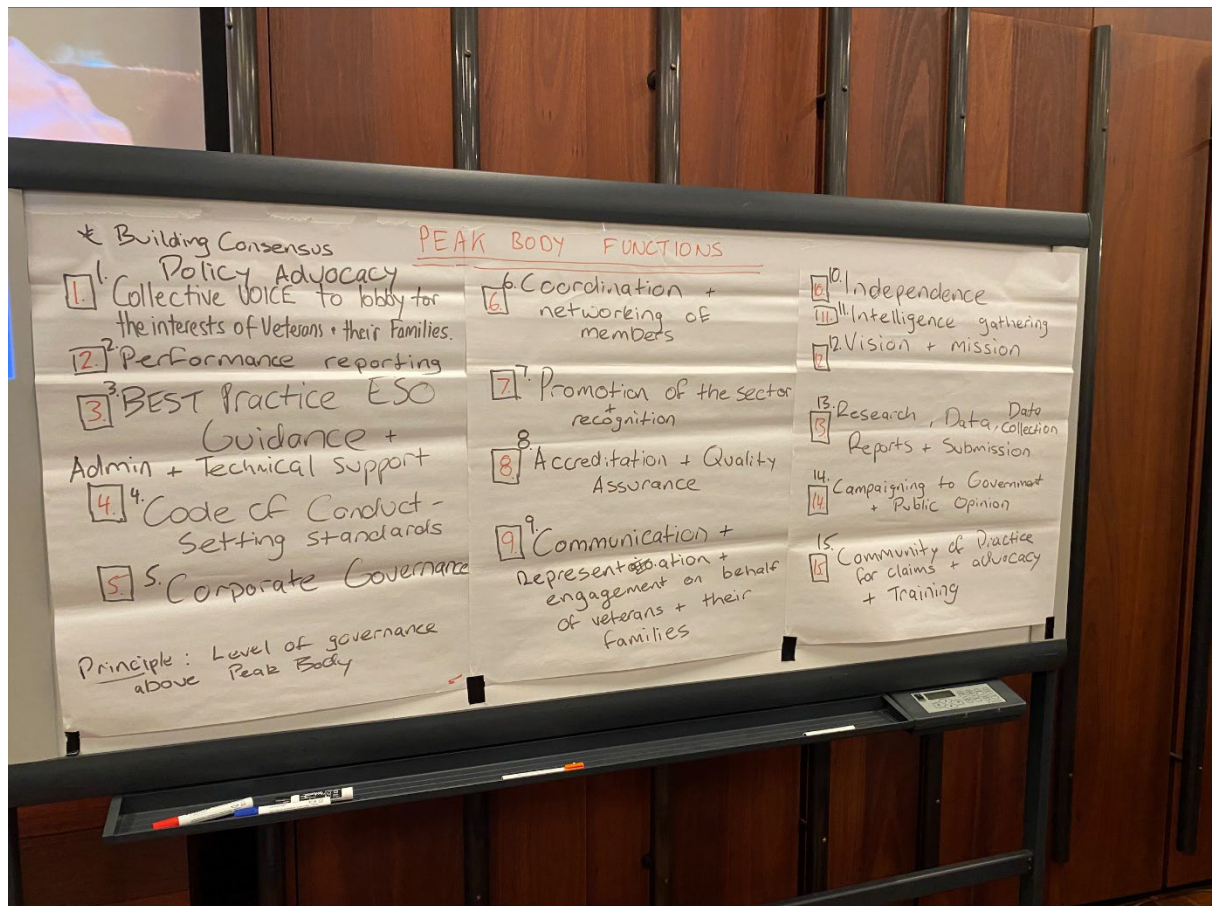 PEAK BODY FUNCTIONS
* Building Consensus
1. 1. Policy Advocacy
Collective VOICE to lobby for
the interests of Veterans + their Families.
2. 2. Performance reporting
3. 3. BEST Practice ESO
Guidance +
Admin + Technical Support
4. 4. Code of Conduct -
Setting standards
5. 5. Corporate Governance
Principle : Level of governance
above Peak Body
6. 6. Coordination +
networking of
members
7. 7. Promotion of the sector
+
recognition
8. 8. Accreditation + Quality
Assurance
9. 9. Communication +
Representation +
engagement on behalf
of veterans + their
families
10. 10. Independence
11. 11. Intelligence gathering
12. 12. Vision + mission
13. 13. Research, Data, Data Collection
Reports + Submission
14. 14. Campaigning to Government
+ Public Opinion
15. 15. Community of Practice
for claims + advocacy
+ Training